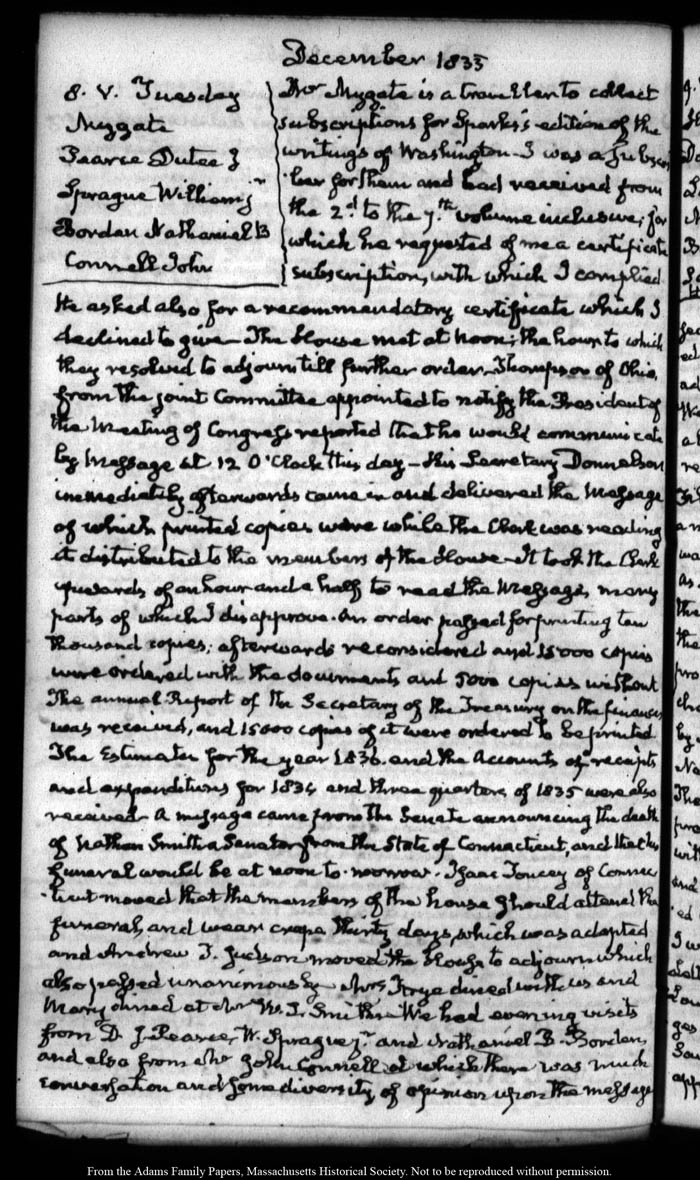 December 1835
8. V. Tuesday
Mygate
Pearce Dutee J
Sprague William jr
Bordan Nathaniel B
Connell John
Mr Mygate is a traveller to collect
subscriptions for Sparks's edition of the
writings of Washington. I was a subscri
ber for them and had received from
the 2d. to the 7.th volume inclusive; for
which he requested of me a certificate
subscription, with which I complied
He asked also for a recommendatory certificate which I
declined to give. The House met at Noon; the hour to which
they resolved to adjourn till further order. Thompson of Ohio,
from the joint Committee appointed to notify the President of
the Meeting of Congress reported that he would communicate
by Message at 12 O'Clock this day - His Secretary Donnelson
immediately afterwards came in and delivered the Message
of which printed copies were while the Clerk was reading
it distributed to the members of the House. It took the Clerk
upwards of an hour and a half to read the Message, many
parts of which I disapprove. An order passed for printing ten
thousand copies; afterwards reconsidered and 15000 copies
were ordered with the documents and 5000 copies without
The annual Report of the Secretary of the Treasury on the finances
was received, and 15000 copies of it were ordered to be printed
The Estimates for the year 1836. and the Accounts of receipts
and expenditures for 1834 and three quarters of 1835 were also
received. A message came from the Senate announcing the death
of Nathan Smith a Senator from the State of Connecticut, and that his
funeral would be at noon to-morrow. Isaac Toucey of Connec
ticut moved that the members of the house should attend the
funeral, and wear crape thirty days, which was adopted
and Andrew T. Judson moved the House to adjourn which
also passed unanimously. Mrs Frye dined with us and
Mary dined at Mr W. T. Smith's. We had evening visits
from D. J. Pearce, W. Sprague jr. and Nathaniel B. Borden,
and also from Mr John Connell at which there was much
conversation and some diversity of opinion upon the message
From the Adams Family Papers, Massachusetts Historical Society. Not to be reproduced without permission.